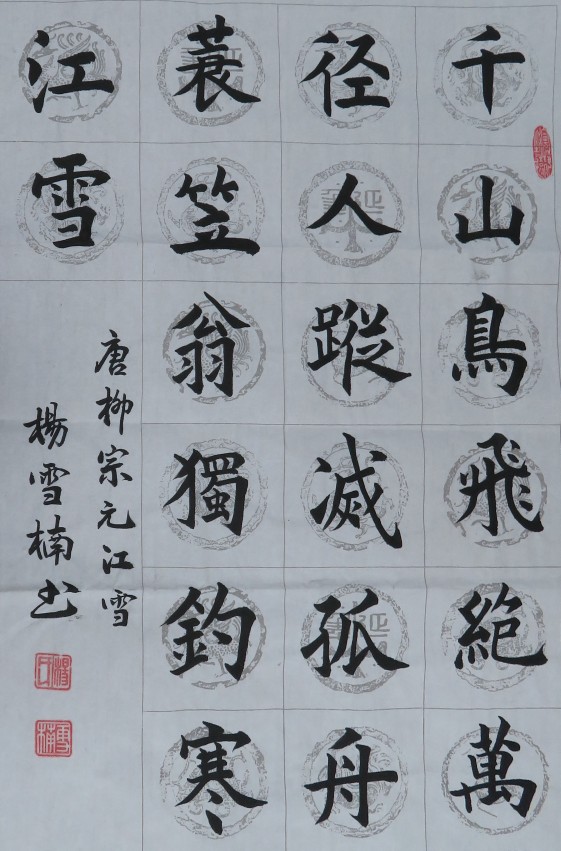 千山鳥飛絕萬
径人蹤滅孤舟
蓑笠翁獨釣寒
江雪
唐柳宗元江雪
楊雪楠书